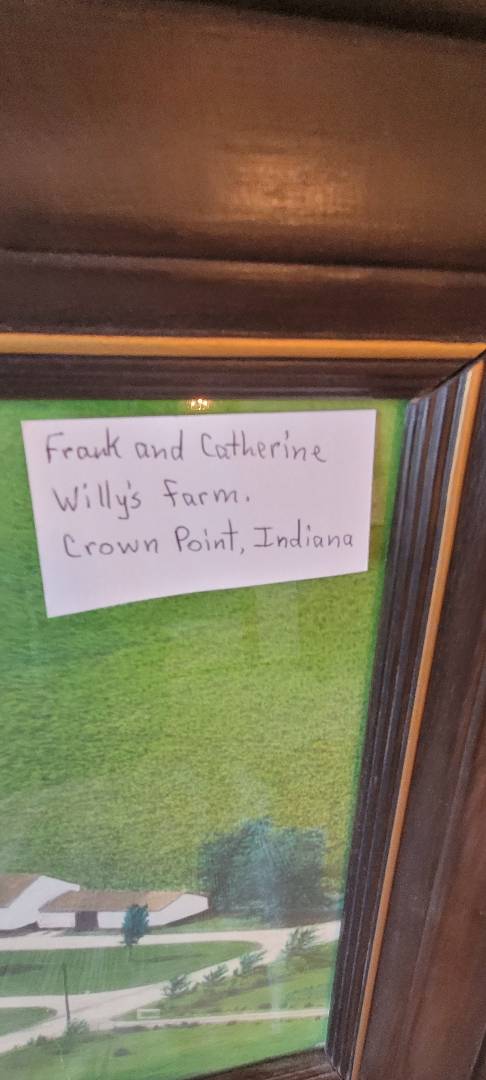 Frank and Catherine
Willy's Farm.
Crown Point, Indiana